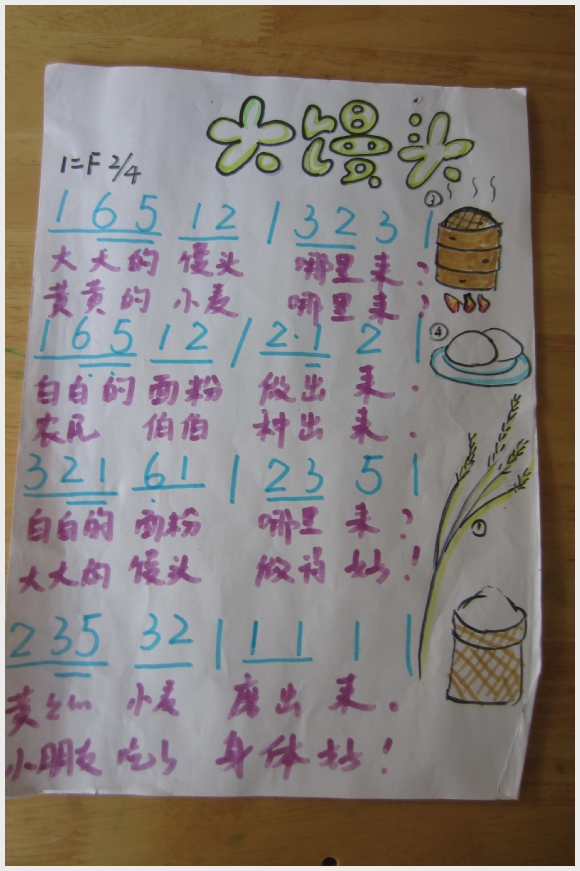 大馒头
1=F 2/4
1 6 5 1 2 | 3 2 3 | ③
大大的 馒头 哪里来?
黄黄的 小麦 哪里来?
1 6 5 1 2 | 2. 1 2 | ④
白白的 面粉 做出 来.
农民 伯伯 种出 来.
3 2 1 6 1 | 2 3 5 |
白白的 面粉 哪里 来?
大大的 馒头 做 好! ①
2 3 5 3 2 | 1 1 1 |
黄 小麦 磨出 来.
小朋友 吃了 身体 好!